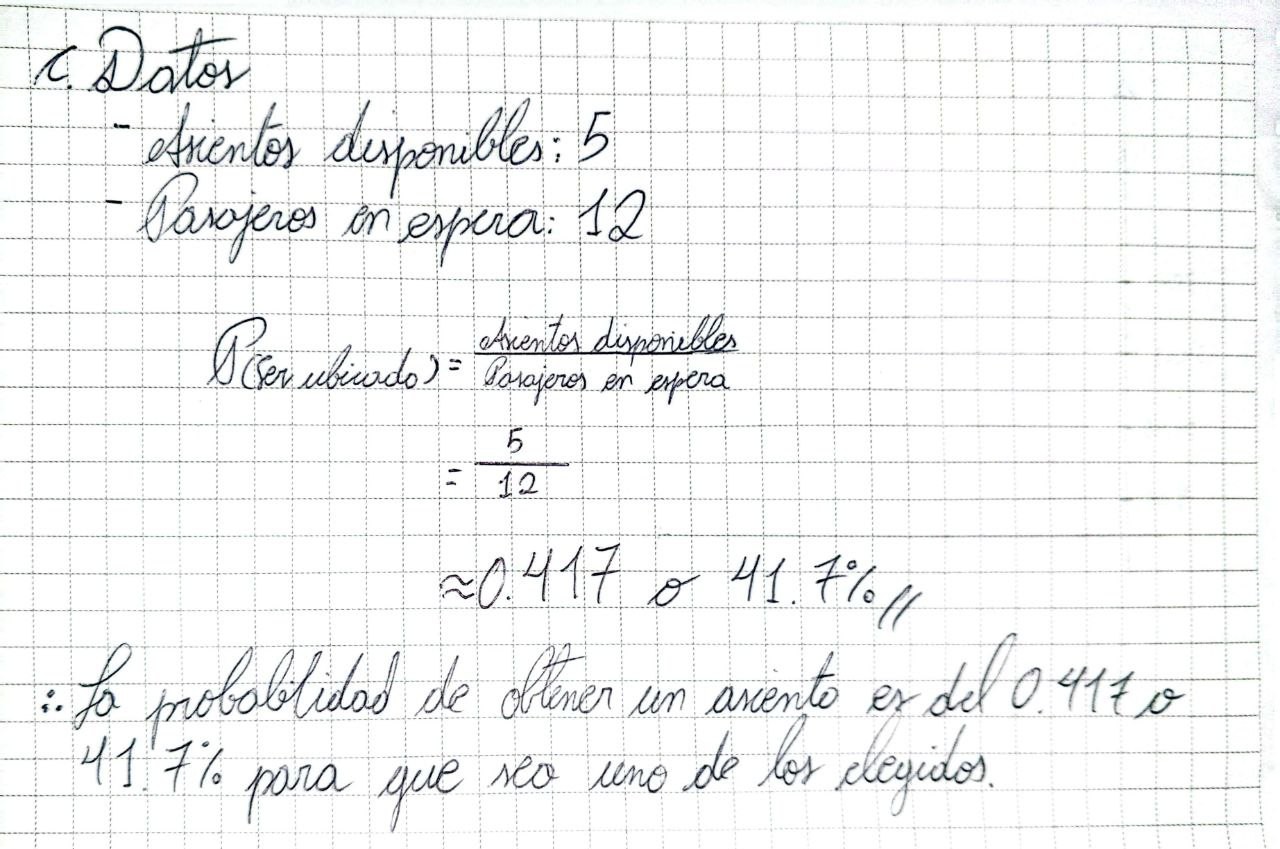 c. Datos
- Asientos disponibles: 5
- Pasajeros en espera: 12
P(ser ubicado) = Asientos disponibles / Pasajeros en espera
= 5 / 12
≈ 0.417 o 41.7% //
∴ La probabilidad de obtener un asiento es del 0.417 o
41.7% para que sea uno de los elegidos.